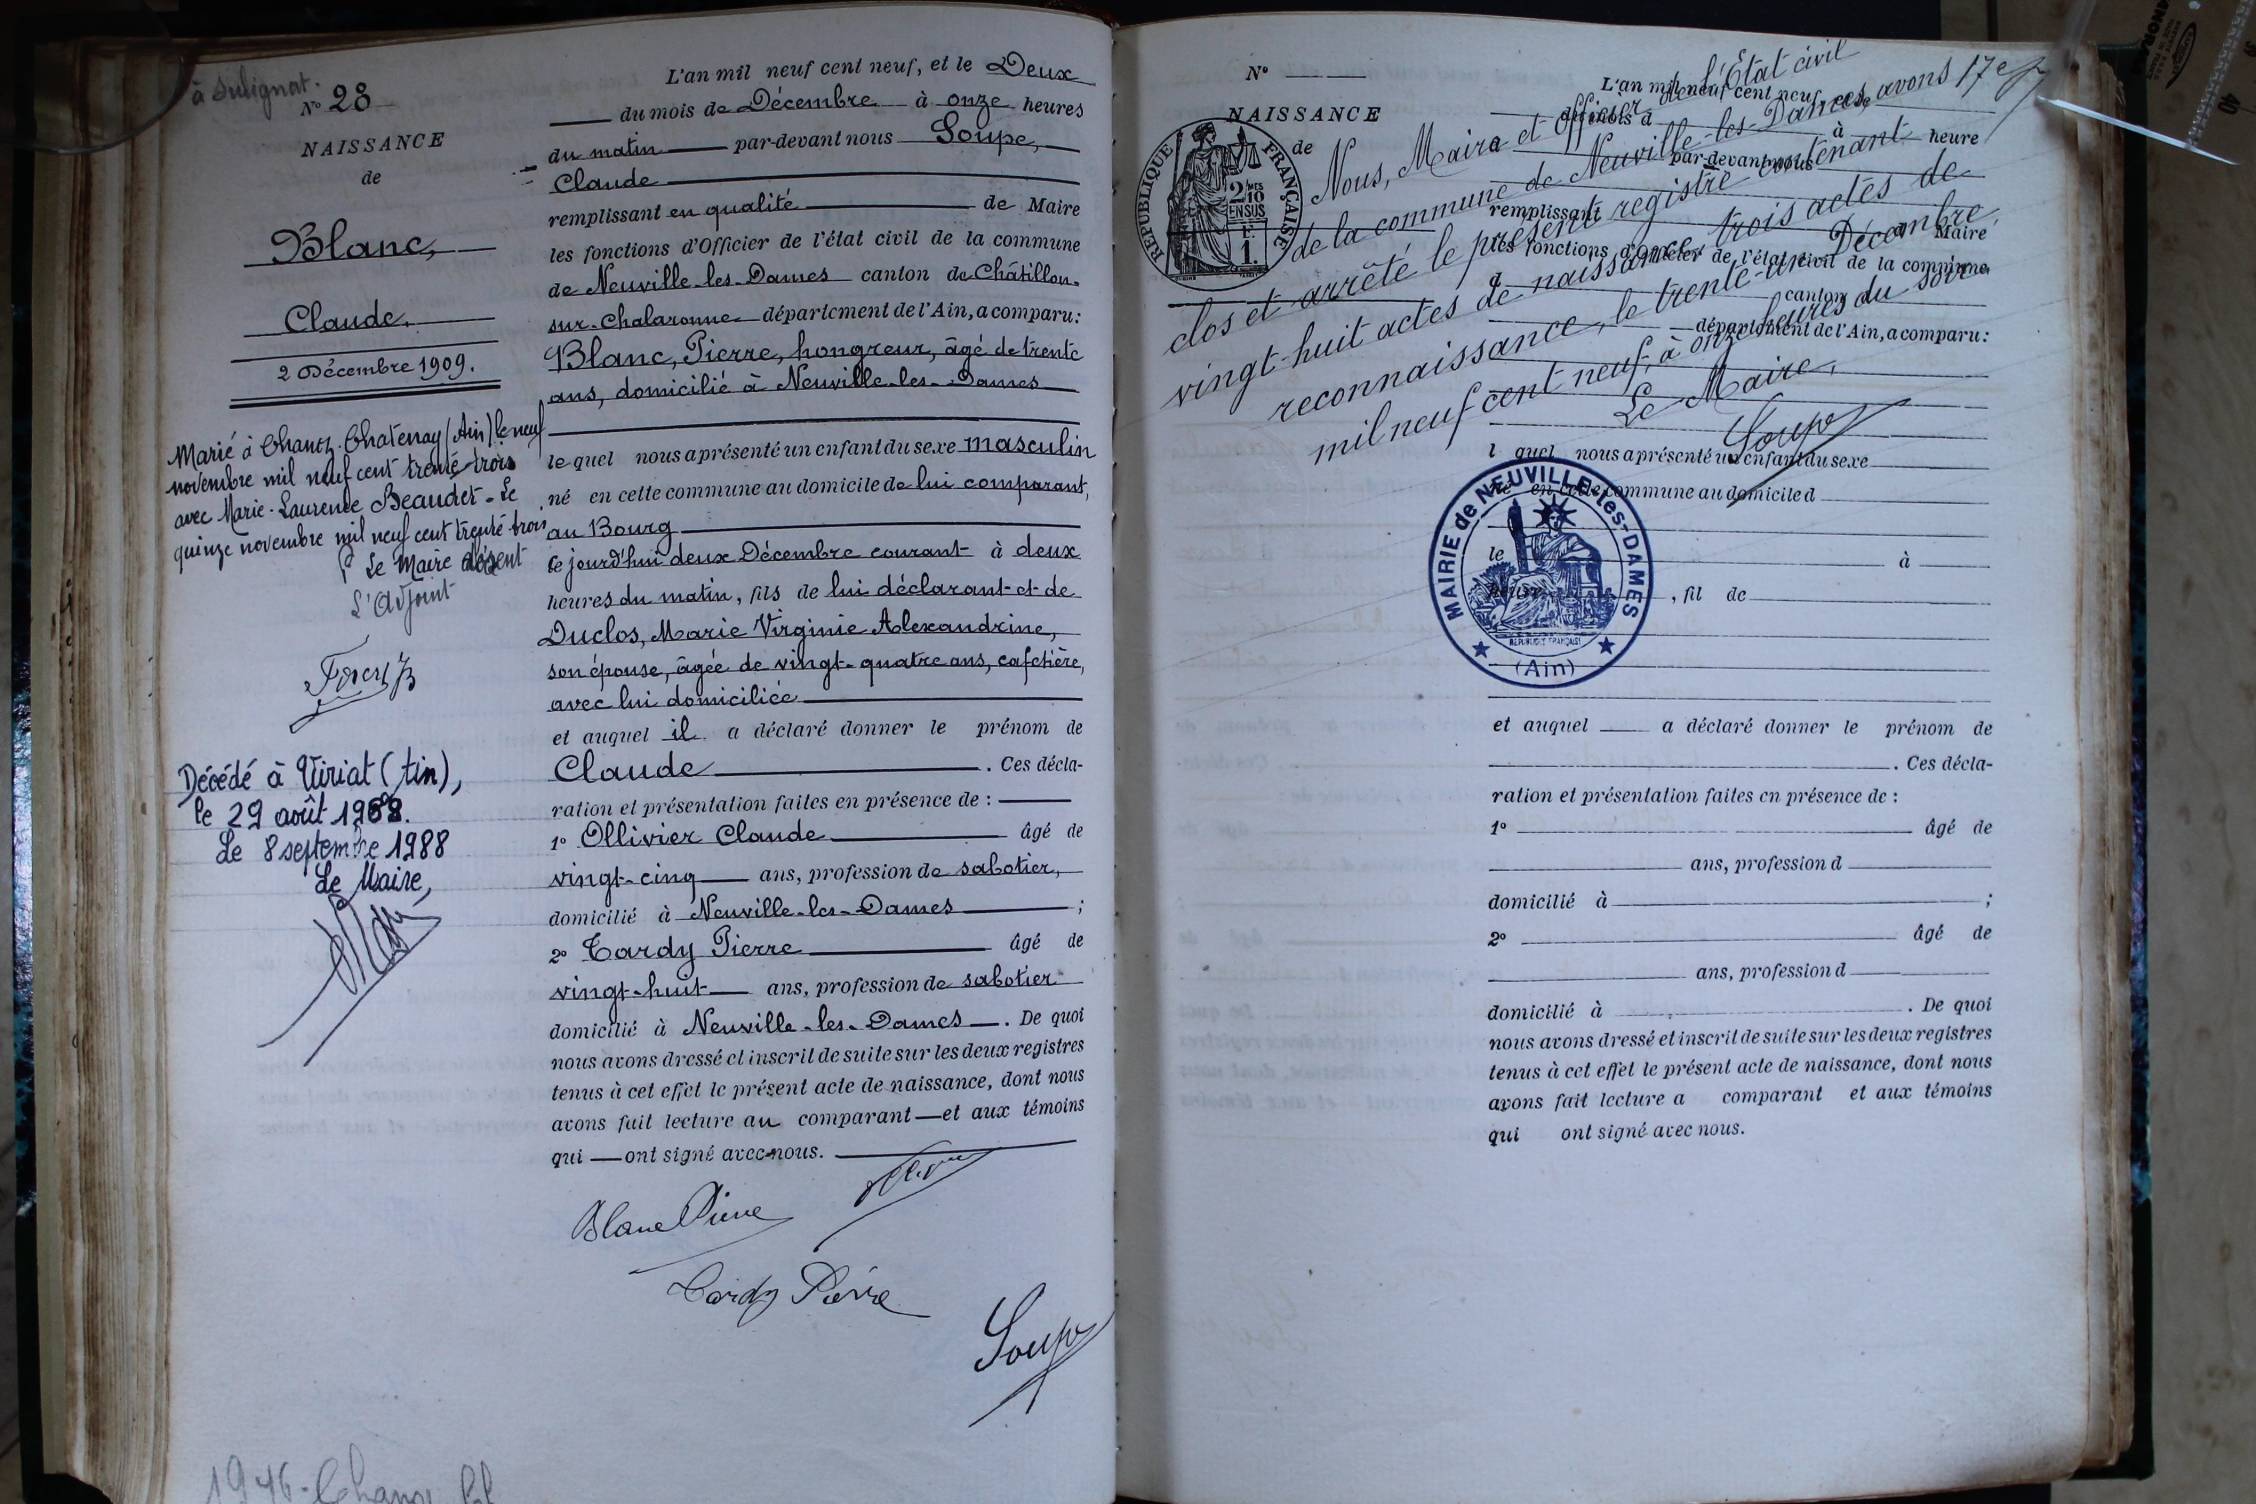 à Sulignat.
N° 28
NAISSANCE
de
Blanc,
Claude,
2 Décembre 1909.
Marié à Chanoz-Chatenay (Ain) le neuf
novembre mil neuf cent trente-trois
avec Marie-Laurence Beaudet - Le
quinze novembre mil neuf cent trente trois
Pr Le Maire absent
L'Adjoint
Décédé à Viriat (Ain),
le 29 août 1988.
Le 8 septembre 1988
Le Maire,
L'an mil neuf cent neuf, et le Deux
du mois de Décembre à onze heures
du matin par-devant nous Soupe,
Claude
remplissant en qualité de Maire
les fonctions d'Officier de l'état civil de la commune
de Neuville-les-Dames canton de Châtillon-
sur-Chalaronne département de l'Ain, a comparu:
Blanc, Pierre, hongreur, âgé de trente
ans, domicilié à Neuville-les-Dames
lequel nous a présenté un enfant du sexe masculin
né en cette commune au domicile de lui comparant,
au Bourg
ce jourd'hui deux Décembre courant à deux
heures du matin, fils de lui déclarant et de
Duclos, Marie Virginie Alexandrine,
son épouse, âgée de vingt-quatre ans, cafetière,
avec lui domiciliée
et auquel il a déclaré donner le prénom de
Claude. Ces décla-
ration et présentation faites en présence de :
1° Ollivier Claude âgé de
vingt-cinq ans, profession de sabotier,
domicilié à Neuville-les-Dames ;
2° Tardy Pierre âgé de
vingt-huit ans, profession de sabotier
domicilié à Neuville-les-Dames. De quoi
nous avons dressé et inscrit de suite sur les deux registres
tenus à cet effet le présent acte de naissance, dont nous
avons fait lecture au comparant et aux témoins
qui ont signé avec nous.
Blanc Pierre
Tardy Pierre
Soupe
N°
NAISSANCE
de
RÉPUBLIQUE FRANÇAISE
2/10 MES
EN SUS
1.
Nous, Maire et Officier de l'État civil
de la commune de Neuville-les-Dames, avons
clos et arrêté le présent registre contenant
vingt-huit actes de naissance, trois actes de
reconnaissance, le trente-un Décembre
mil neuf cent neuf, à onze heures du soir
Le Maire,
Soupe
17e
L'an mil neuf cent neuf, et le
du mois d
à heure
par-devant nous
remplissant Maire
les fonctions d'Officier de l'état civil de la commune
d canton
département de l'Ain, a comparu:
l quel nous a présenté un enfant du sexe
né en cette commune au domicile d
le à
heure , fil de
MAIRIE de NEUVILLE-les-DAMES
RÉPUBLIQUE FRANÇAISE
(Ain)
et auquel a déclaré donner le prénom de
. Ces décla-
ration et présentation faites en présence de :
1° âgé de
ans, profession d
domicilié à ;
2° âgé de
ans, profession d
domicilié à . De quoi
nous avons dressé et inscrit de suite sur les deux registres
tenus à cet effet le présent acte de naissance, dont nous
avons fait lecture a comparant et aux témoins
qui ont signé avec nous.